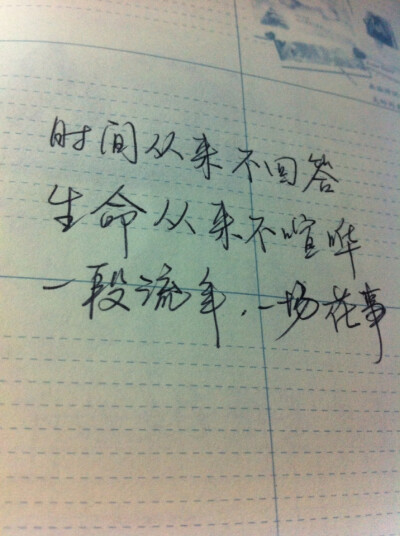 时间从来不回答
生命从来不喧哗
一段流年，一场花事